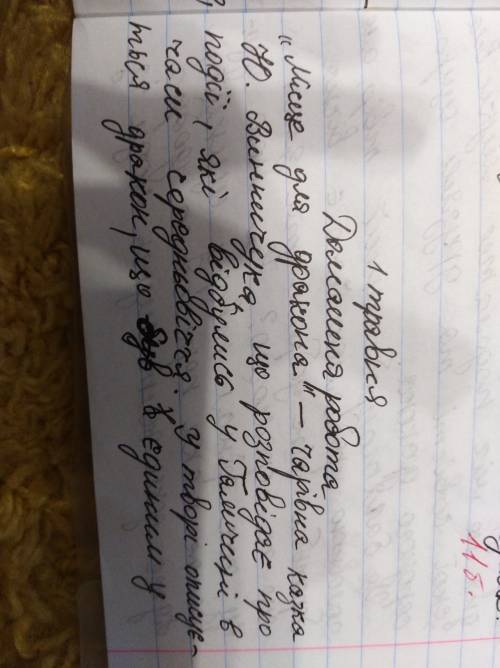 1 травня
Домашня робота
"Місце для дракона" – чарівна казка
Ю. Винничука, що розповідає про
події, які відбулись у Галичині в
часи середньовіччя. У творі описує-
ться дракон, що був є єдиним у
11б.